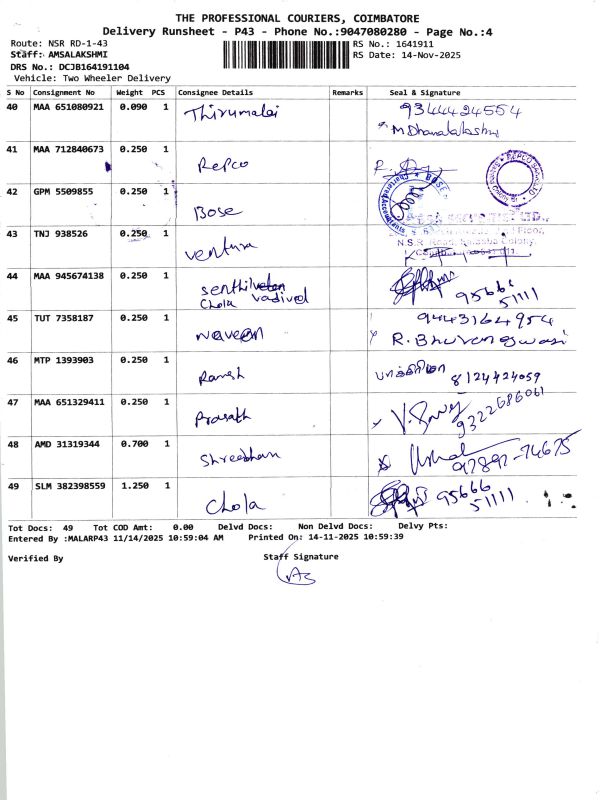 THE PROFESSIONAL COURIERS, COIMBATORE
Delivery Runsheet - P43 - Phone No.:9047080280 - Page No.:4
Route: NSR RD-1-43 RS No.: 1641911
Staff: AMSALAKSHMI RS Date: 14-Nov-2025
DRS No.: DCJB164191104
Vehicle: Two Wheeler Delivery
S No Consignment No Weight PCS Consignee Details Remarks Seal & Signature
40 MAA 651080921 0.090 1 Thirumalai 9344424554
M Dhanalakshmi
41 MAA 712840673 0.250 1 Repco
REPCO
42 GPM 5509855 0.250 1 Bose
BOSE
Chartered Accountants
43 TNJ 938526 0.250 1 ventura
N.S.R. Road, Saibaba Colony,
44 MAA 945674138 0.250 1 senthil
Chola vadivel 95666
51111
45 TUT 7358187 0.250 1 naveen 9443164954
R. Bhuvaneswari
46 MTP 1393903 0.250 1 Ramsh 8124424059
47 MAA 651329411 0.250 1 Prasath 9322686061
48 AMD 31319344 0.700 1 Shreedham
97897-74675
49 SLM 382398559 1.250 1 Chola 95666
51111
Tot Docs: 49 Tot COD Amt: 0.00 Delvd Docs: Non Delvd Docs: Delvy Pts:
Entered By :MALARP43 11/14/2025 10:59:04 AM Printed On: 14-11-2025 10:59:39
Verified By Staff Signature